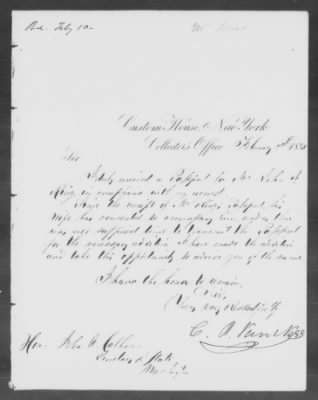 Rec. Feby 10
Custom House, New York
Collector's Office February
Sir
I duly received a Passport for Mr. John
King in compliance with my request.
Since the receipt of Mr. King's passport, his
wife has consented to accompany him and as time
was not sufficient to the Passport
for the necessary addition I have made the addition
and take this opportunity to advise you of the same.
I have the honor to remain
Sir,
Very Respectfully
C. P. Van Ness
Hon. John C. Calhoun
Secretary of State